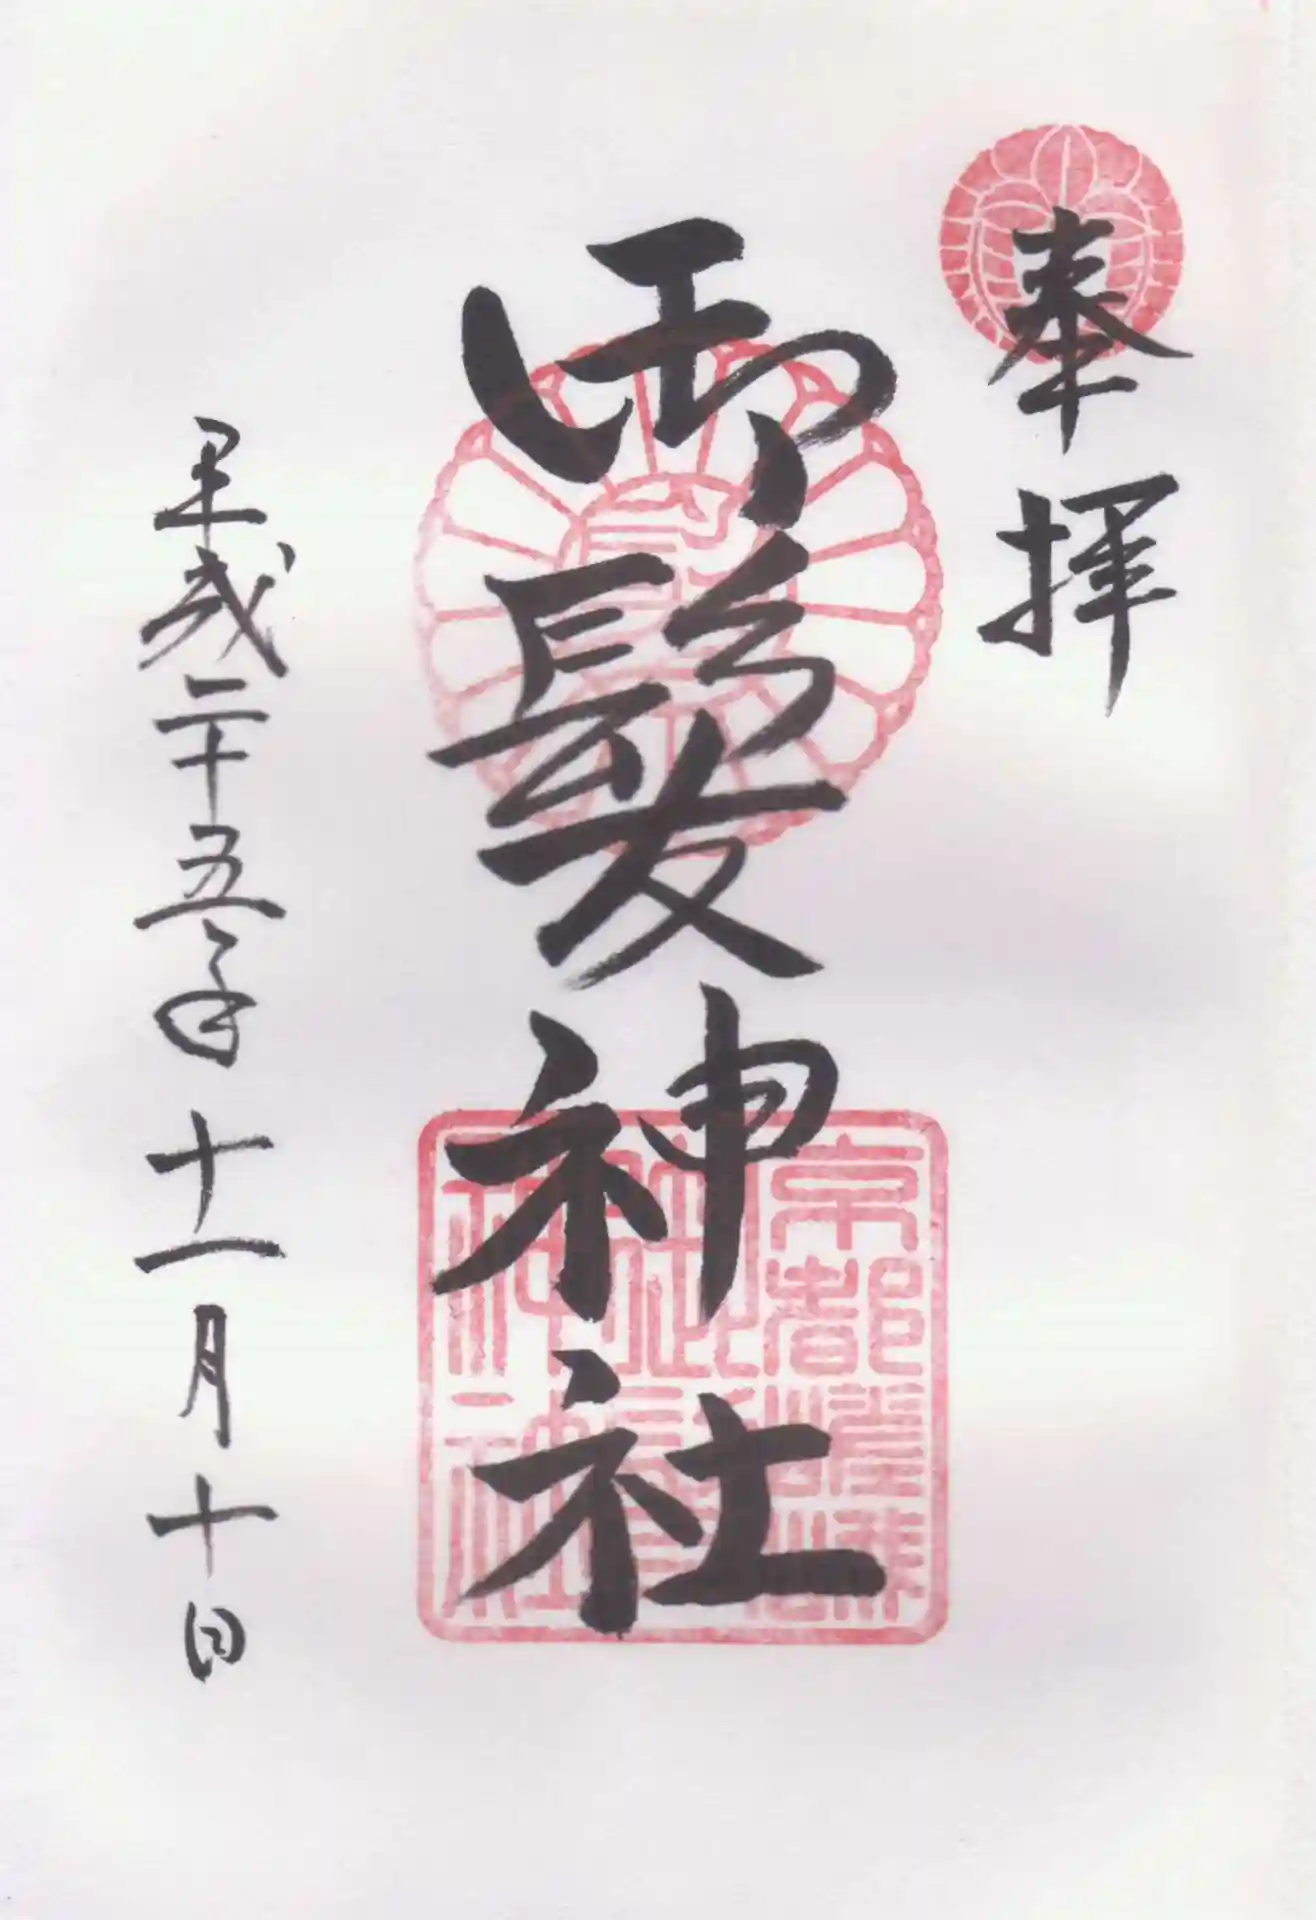 奉拝
御髪神社
京都嵯峨
御髪
神社
平成二十五年十一月十日